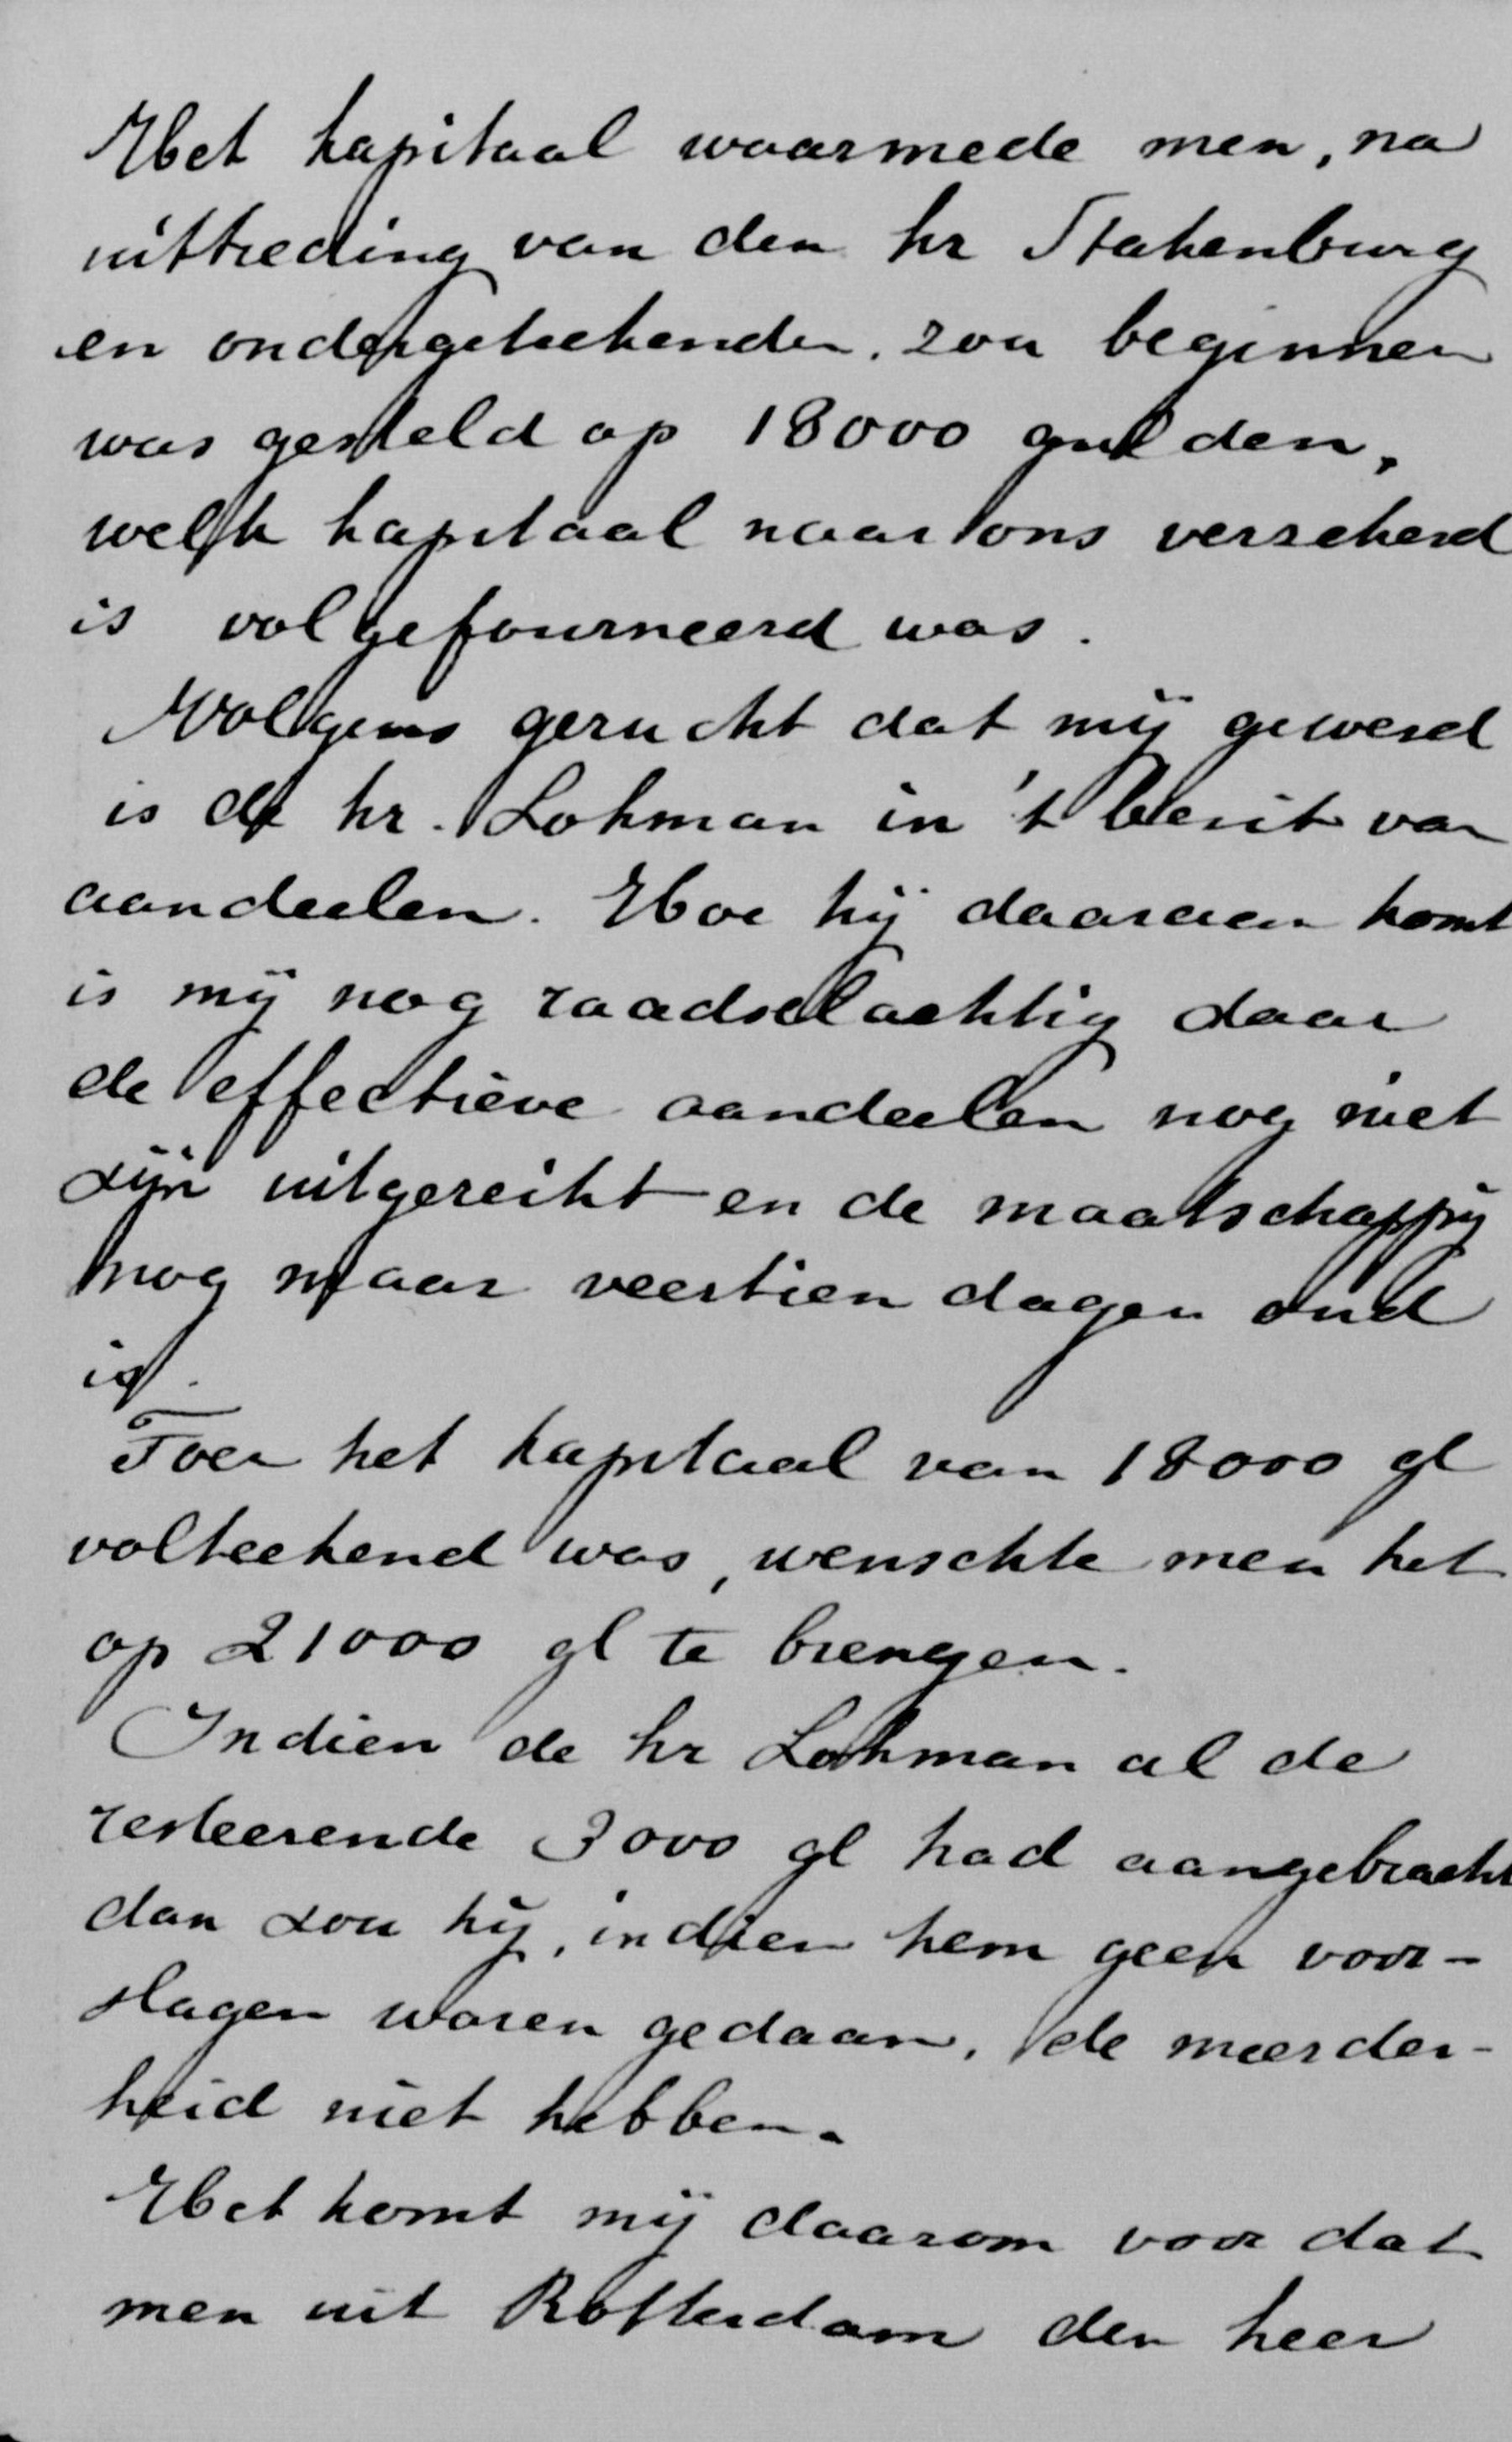 Het kapitaal waarmede men, na
uittreding van den hr Stakenburg
en ondergeteekenden. zou beginnen
was gesteld op 18000 gulden,
welk kapitaal naar ons verzekerd
is volgefourneerd was.
Volgens gerucht dat mij gewerd
is de hr. Lohman in 't bezit van
aandeelen. Hoe hij daaraan komt
is mij nog raadselachtig daar
de effectieve aandeelen nog niet
zijn uitgereikt en de maatschappij
nog maar veertien dagen oud
is.
Toen het kapitaal van 18000 gl
volteekend was, wenschte men het
op 21000 gl te brengen.
Indien de hr Lohman al de
resteerende 3000 gl had aangebracht
dan zou hij, indien hem geen voor-
slagen waren gedaan, de meerder-
heid niet hebben.
Het komt mij daarom voor dat
men uit Rotterdam den heer